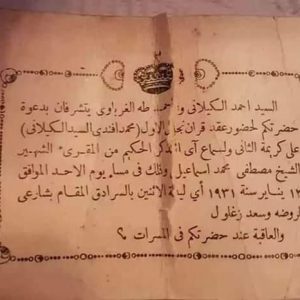 السيد احمد الكيلانى و احمد طه الغرباوى يتشرفان بدعوة
حضرتكم لحضور عقد قران نجل الاول (محمد افندى السيد الكيلانى)
على كريمة الثانى ولسماع آى الذكر الحكيم من المقرىء الشهير
الشيخ مصطفى محمد اسماعيل وذلك فى مساء يوم الاحد الموافق
يناير سنة ١٩٣١ أى ليلة الاثنين بالسرادق المقام بشارعى
الروضه وسعد زغلول
والعاقبة عند حضرتكم فى المسرات